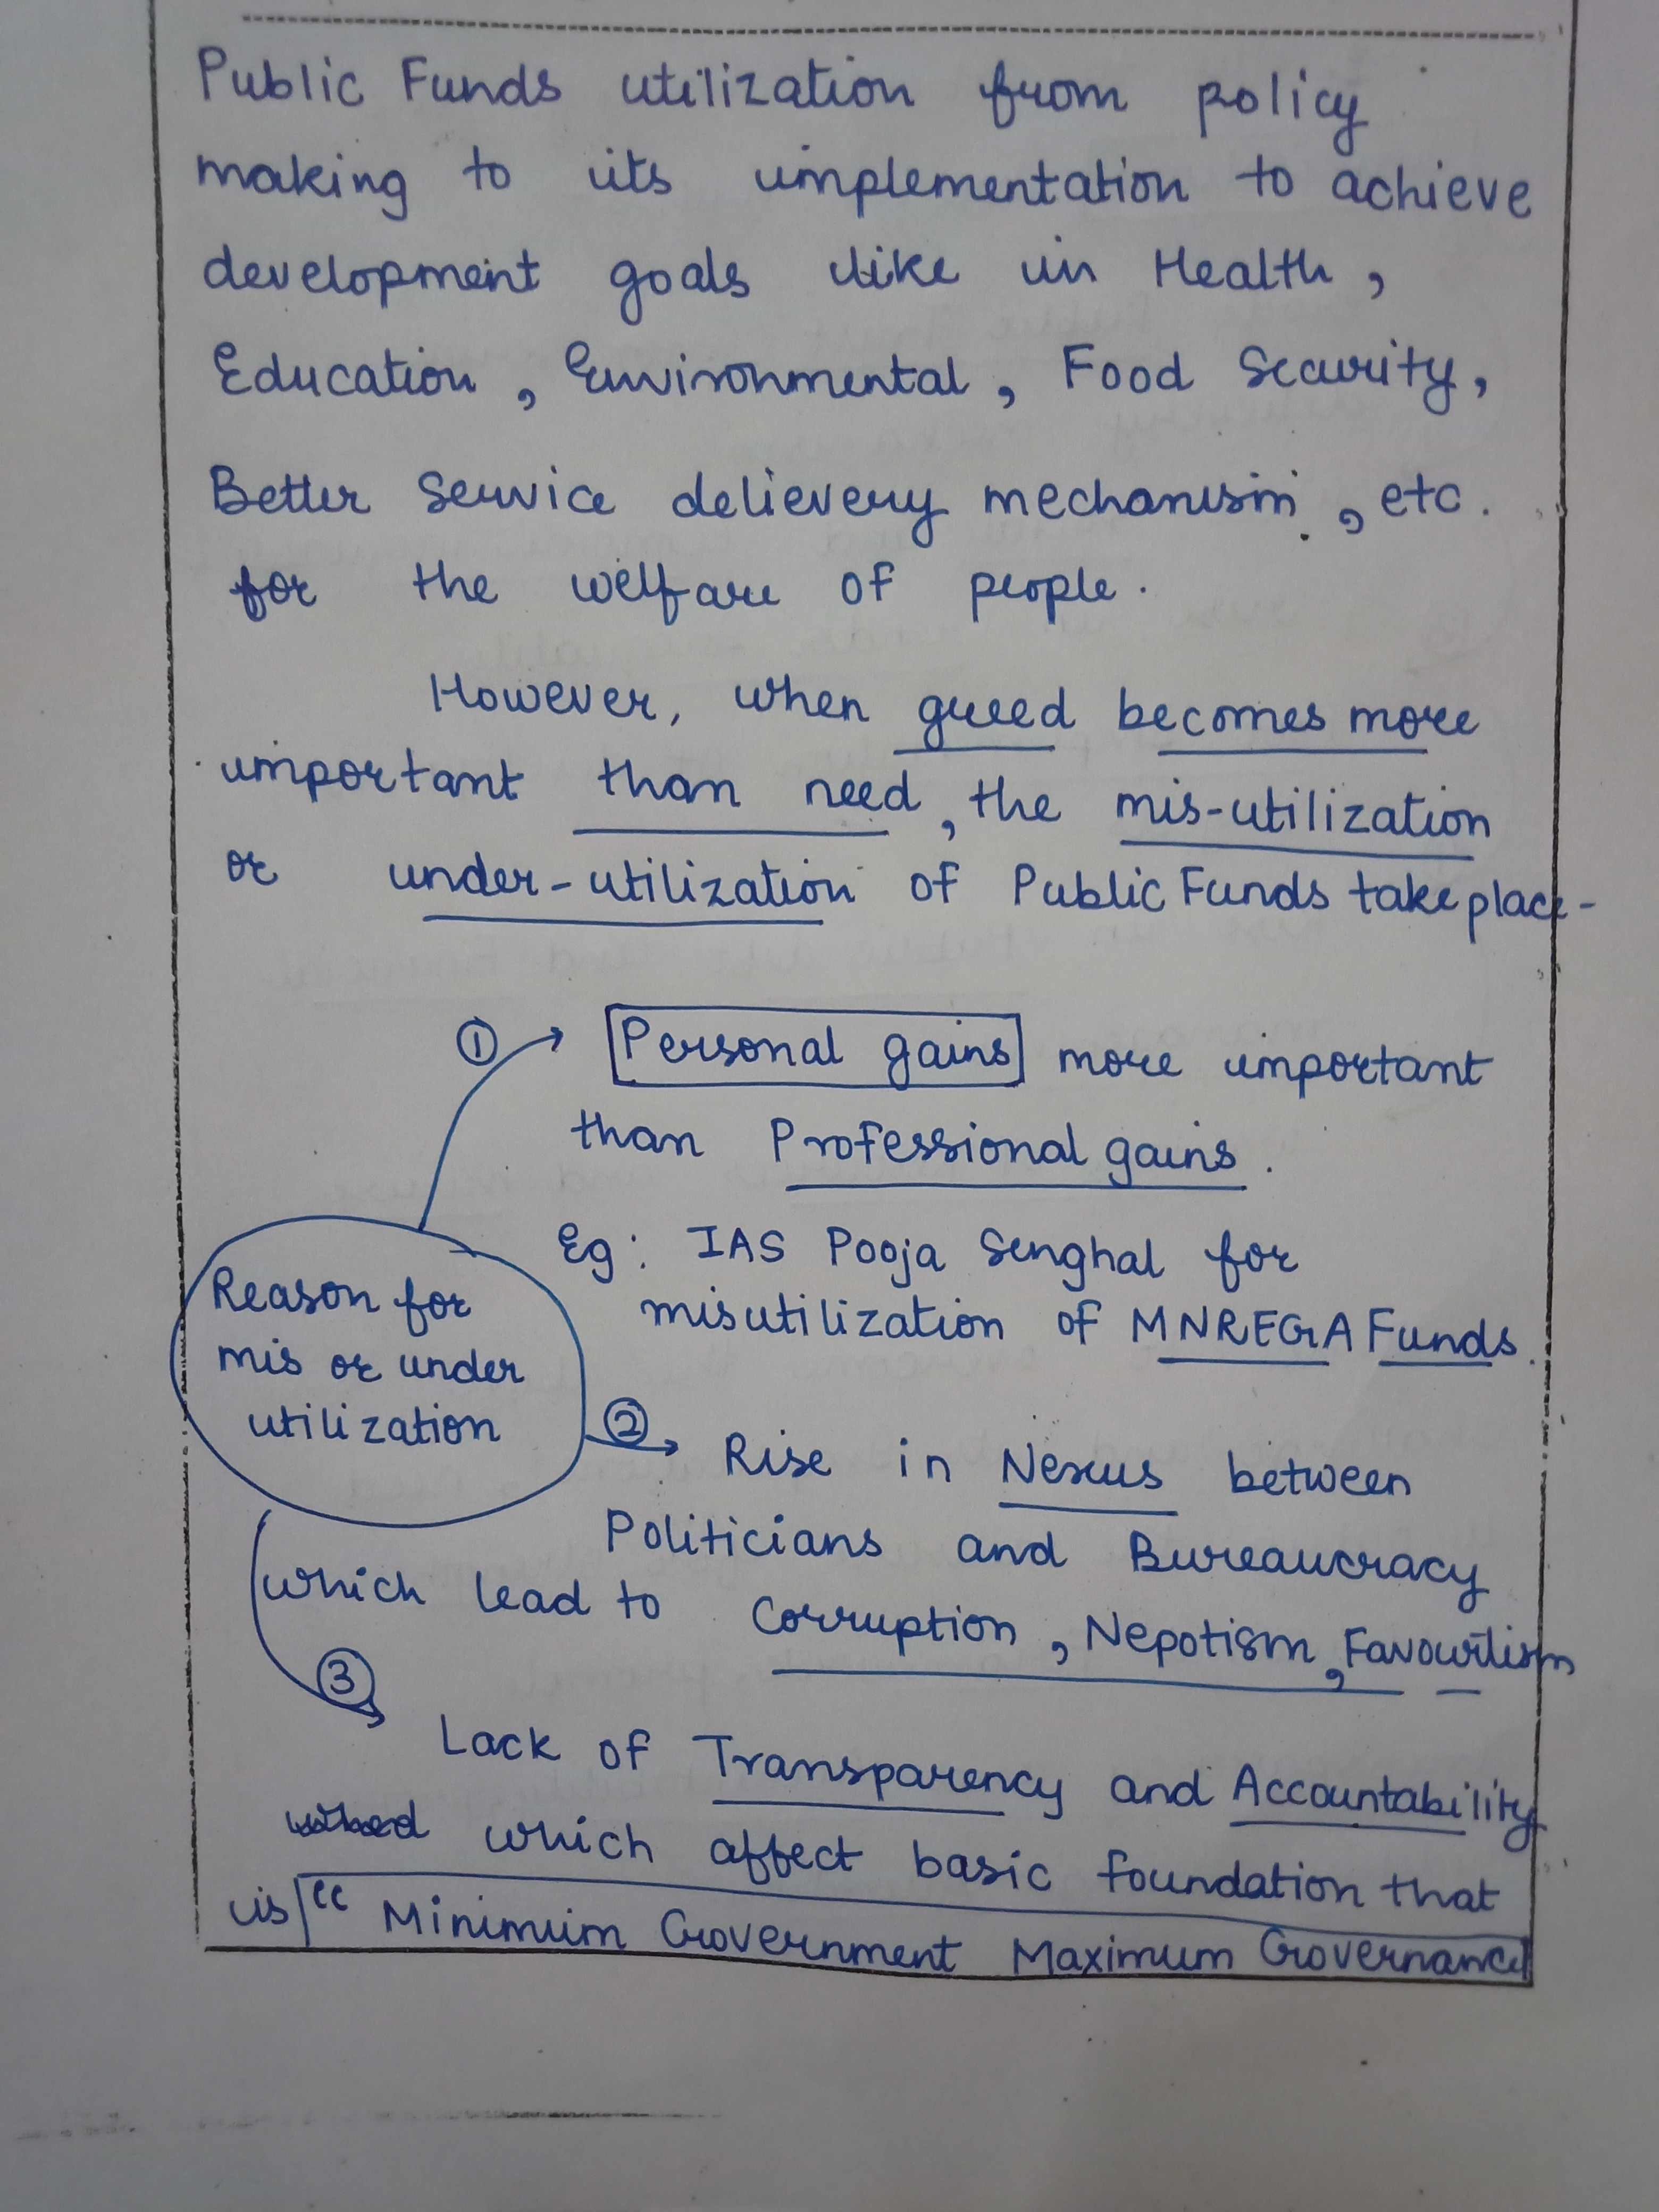 Public Funds utilization from policy
making to its implementation to achieve
development goals like in Health,
Education, Environmental, Food Security,
Better Service delievery mechanism, etc.
for the welfare of people.
However, when greed becomes more
important than need, the mis-utilization
or under-utilization of Public Funds take place-
① Personal gains more important
than Professional gains.
Eg: IAS Pooja Senghal for
misutilization of MNREGA Funds.
Reason for
mis or under
utilization
② Rise in Nexus between
Politicians and Bureaucracy
which lead to Corruption, Nepotism, Favouritism
③ Lack of Transparency and Accountability
which affect basic foundation that
is "Minimum Government Maximum Governance